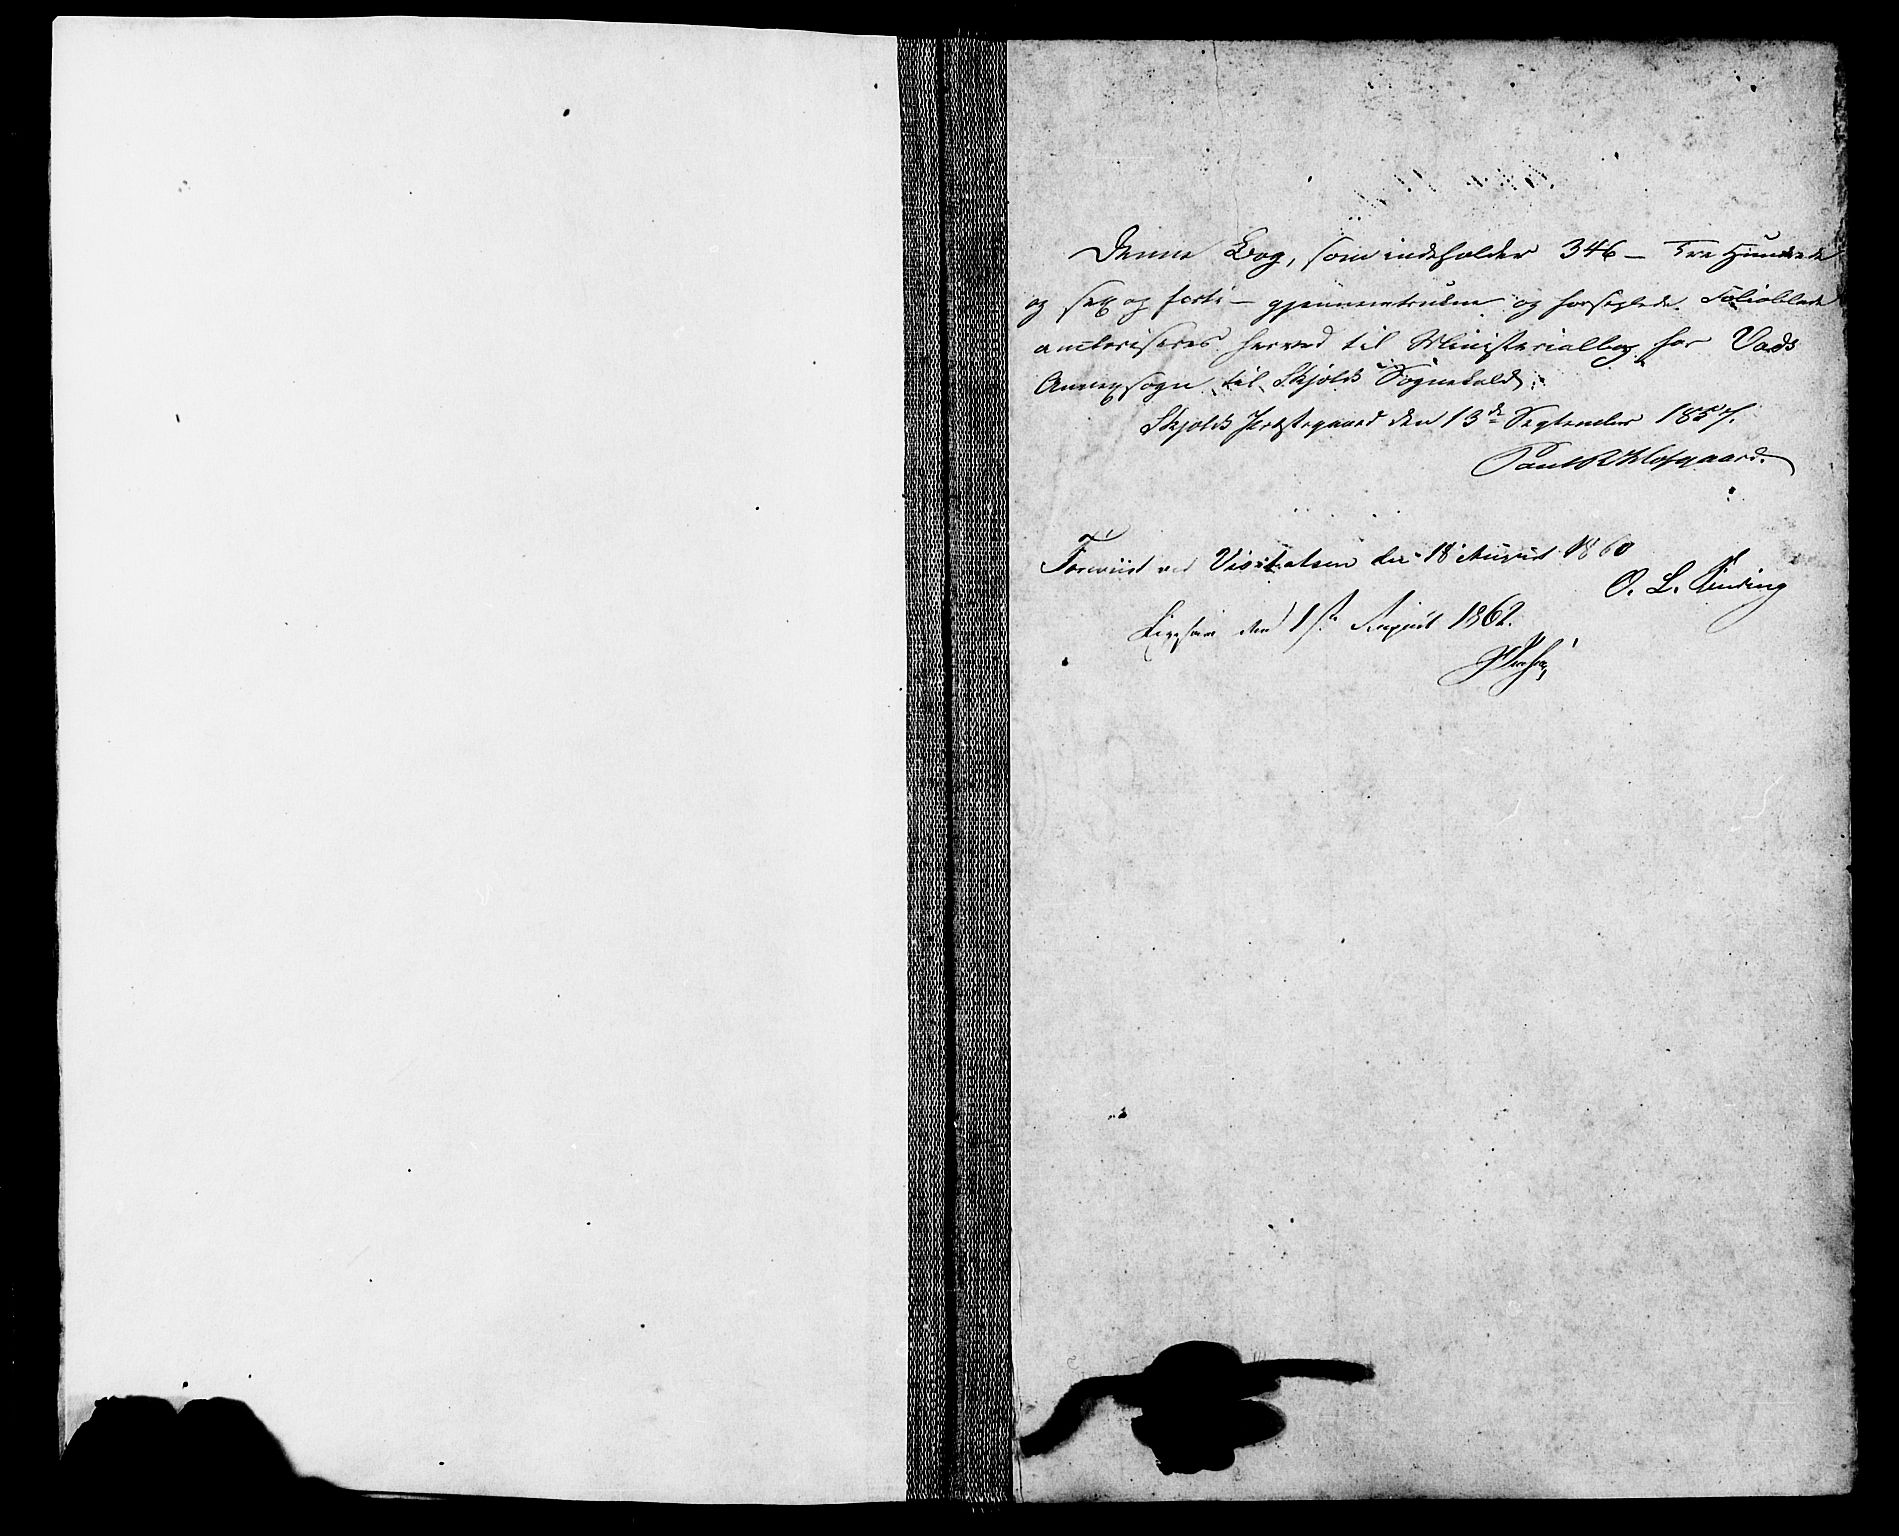 Denne Bog, som indeholder 346 – Tre Hundrede
og sex og forti – gjennemtrukne og forseglede Folioblade
auctoriseres herved til Ministerialbog for Vads
Annexsogn til Skjolds Sognekald.
Skjolds Præstegaard den 13de September 1857.
Foreviist ved Visitatsen den 18 August 1860
O. L.
den 1ste August 1862.